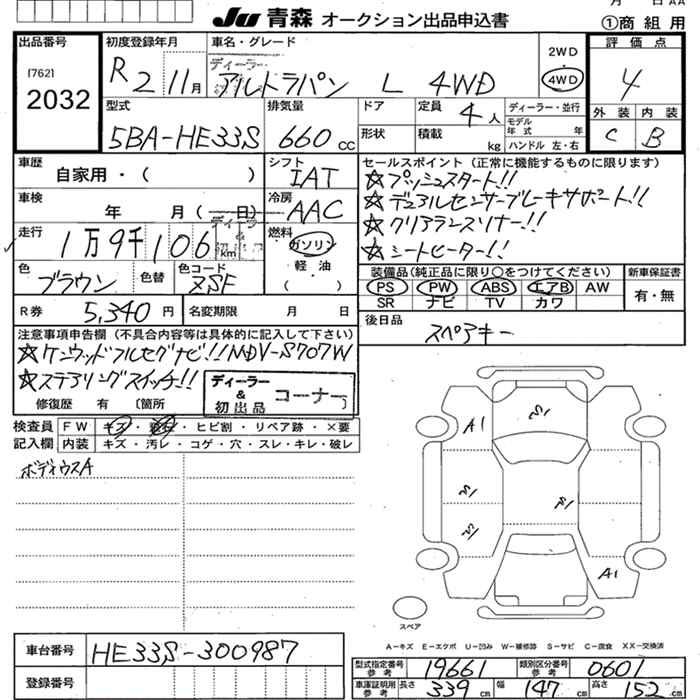 JU 青森 オークション出品申込書
①商 組 用
出品番号
(762)
2032
初度登録年月
R 2 11月
車名・グレード
ディーラー
アルトラパン L 4WD
2WD
4WD
評 価 点
4
型式
5BA-HE33S
排気量
660 cc
ドア
形状
定員 4 人
積載 kg
ディーラー・並行
モデル年式 年
ハンドル 左・右
外装 内装
C B
車歴
自家用・( )
シフト
IAT
車検
年 月( 日)
冷房
AAC
走行
1万9千106 km
燃料
ガソリン
軽油
( )
色
ブラウン
色替
色コード
ZSF
R券 5,340 円
名変期限 月 日
セールスポイント(正常に機能するものに限ります)
☆プッシュスタート!!
☆デュアルセンサーブレーキサポート!!
☆クリアランスソナー!!
☆シートヒーター!!
装備品(純正品に限り○をつけてください)
PS PW ABS エアB AW
SR ナビ TV カワ
新車保証書
有・無
後日品
スペアキー
注意事項申告欄(不具合内容等は具体的に記入して下さい)
☆ケンウッドフルセグナビ!!MDV-S707W
☆ステアリングスイッチ!!
ディーラー
&
初出品
コーナー
修復歴 有 〔箇所 〕
検査員
記入欄
FW キズ・ ・ヒビ割・リペア跡・×要
内装 キズ・汚レ・コゲ・穴・スレ・キレ・破レ
ボディウスA
A1
A1
スペア
A-キズ E-エクボ U-凹み W-補修跡 S-サビ C-腐食 XX-交換済
車台番号 HE33S-300987
登録番号
型式指定番号 参考 19661
類別区分番号 参考 0601
車庫証明用 参考 長さ 339 cm 幅 147 cm 高さ 152 cm